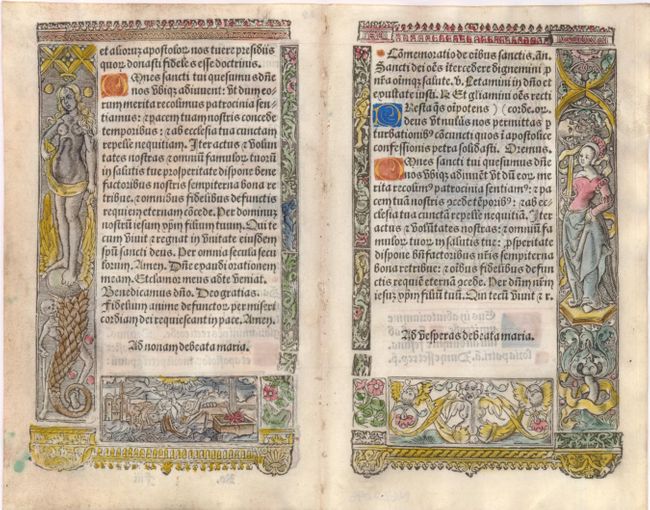 et aliorum apostolor nos tuere presidiis
quor donasti fideles esse doctrinis.
Omnes sancti tui quesumus dñe
nos vbiq adiuuent: vt dum eo
rum merita recolimus patrocinia sen
tiamus: et pacem tuam nostris concede
temporibus: et ab ecclesia tua cunctam
repelle nequitiam. Iter actus et volun
tates nostras et omnium famulor tuorum
in salutis tue prosperitate dispone bene
factoribus nostris sempiterna bona re
tribue. et omnibus fidelibus defunctis
requiem eternam cõcede. Per dominum
nostrum iesum xpm filium tuum. Qui te
cum viuit et regnat in vnitate eiusdem
spũ sancti deus. Per omnia secula secu
lorum. Amen. Dñe exaudi orationem
meam. Et clamor meus ad te veniat.
Benedicamus dño. Deo gratias.
Fidelium anime defunctor per miseri
cordiam dei requiescant in pace. Amen.
Ad nonam de beata maria.
Cõmemoratio de oibus sanctis. añ.
Sancti dei oẽs itercedere dignemini p
nr̃a oimq salute. v. Letamini in dño et
exultate iusti. R. Et gliamini oẽs recti
Presta qs oipotens) (corde. or.
deus vt nullis nos permittas p
turbationib9 cõcuti quos i apostolice
confessionis petra solidasti. Oremus.
Omnes sancti tui quesumus dñe
nos vbiq adiuuẽt vt dũ eor me
rita recolim9 patrocinia sentiam9: et pa
cem tuã nostris ↄcede tẽporib9: et ab ec
clesia tua cunctã repelle nequitiã. Iter
actus et volũtates nostras: et omniũ fa
mulor tuor in salutis tue: prosperitate
dispone bñfactoribus nr̃is sempiterna
bona retribue: et oibus fidelibus defun
ctis requiẽ eternã ↄcede. Per dñm nr̃m
iesum xpm filium tuũ. Qui tecũ viuit et r.
Ad vesperas de beata maria.